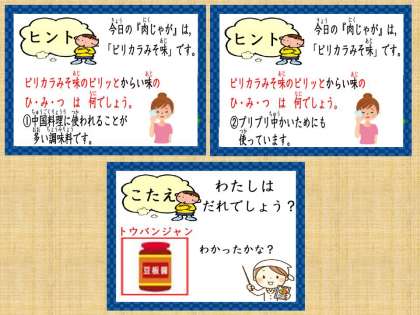 ヒント
今日の『肉じゃが』は,
「ピリカラみそ味」です。
ピリカラみそ味のピリッとからい味の
ひ・み・つ は 何でしょう。
①中国料理に使われることが
多い調味料です。
ヒント
今日の『肉じゃが』は,
「ピリカラみそ味」です。
ピリカラみそ味のピリッとからい味の
ひ・み・つ は 何でしょう。
②プリプリ中かいためにも
使っています。
こたえ
わたしは
だれでしょう？
トウバンジャン
豆板醤
わかったかな？